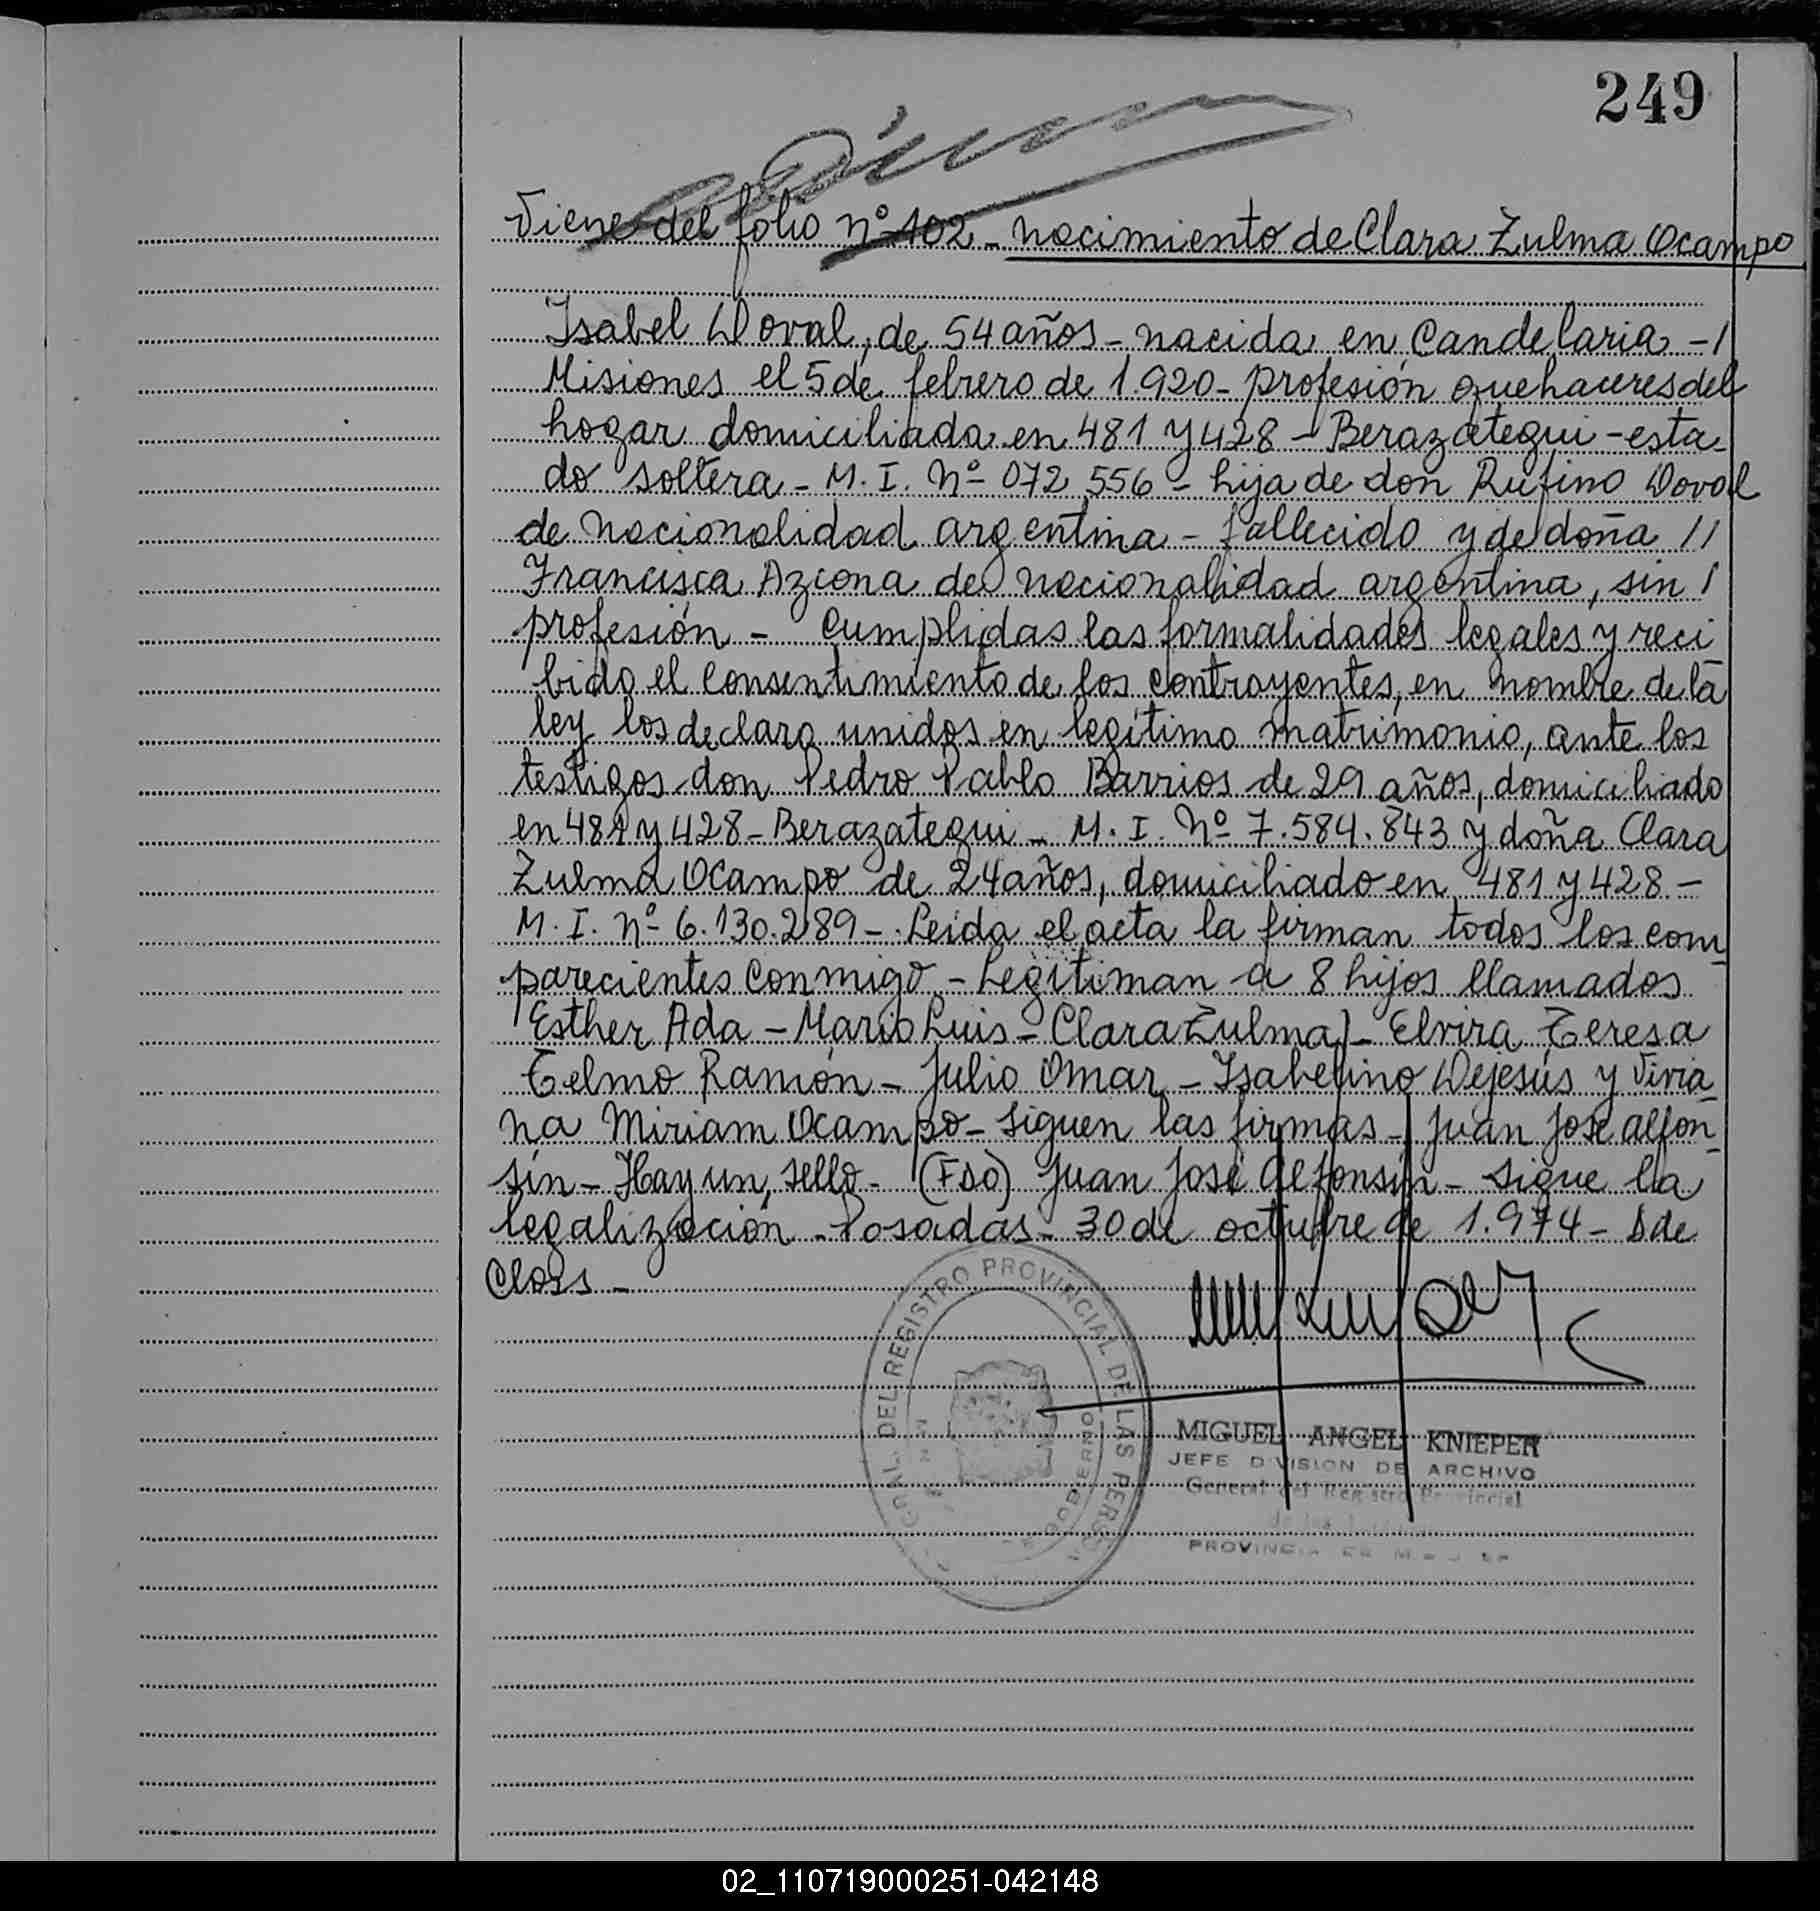 249
Viene del folio nº 102 - nacimiento de Clara Zulma Ocampo
Isabel Doval, de 54 años - nacida en Candelaria - /
Misiones el 5 de febrero de 1.920 - profesión quehaceres del
hogar domiciliada en 481 y 428 - Berazategui - esta-
do soltera - M. I. Nº 072 556 - hija de don Rufino Doval
de nacionalidad argentina - fallecido y de doña //
Francisca Azcona de nacionalidad argentina, sin /
profesión - Cumplidas las formalidades legales y reci
bido el consentimiento de los contrayentes, en nombre de la
ley los declaro unidos en legítimo matrimonio, ante los
testigos don Pedro Pablo Barrios de 29 años, domiciliado
en 481 y 428 - Berazategui - M. I. Nº 7.584.843 y doña Clara
Zulma Ocampo de 24 años, domiciliado en 481 y 428 -
M. I. Nº 6.130.289 - Leida el acta la firman todos los com-
parecientes conmigo - Legitiman a 8 hijos llamados
Esther Ada - Mario Luis - Clara Zulma - Elvira Teresa
Telmo Ramón - Julio Omar - Isabelino Dejesús y Vivia-
na Miriam Ocampo - siguen las firmas - Juan José Alfon-
sín - Hay un sello - (Fdo) Juan José Alfonsín - sigue la
legalización - Posadas - 30 de octubre de 1.974 - S de
Closs -
GRAL. DEL REGISTRO PROVINCIAL DE LAS PERSON
GOBIERNO
MIGUEL ANGEL KNIEPER
JEFE DIVISION DE ARCHIVO
General del Registro Provincial
de las
PROVINCIA DE
02_110719000251-042148